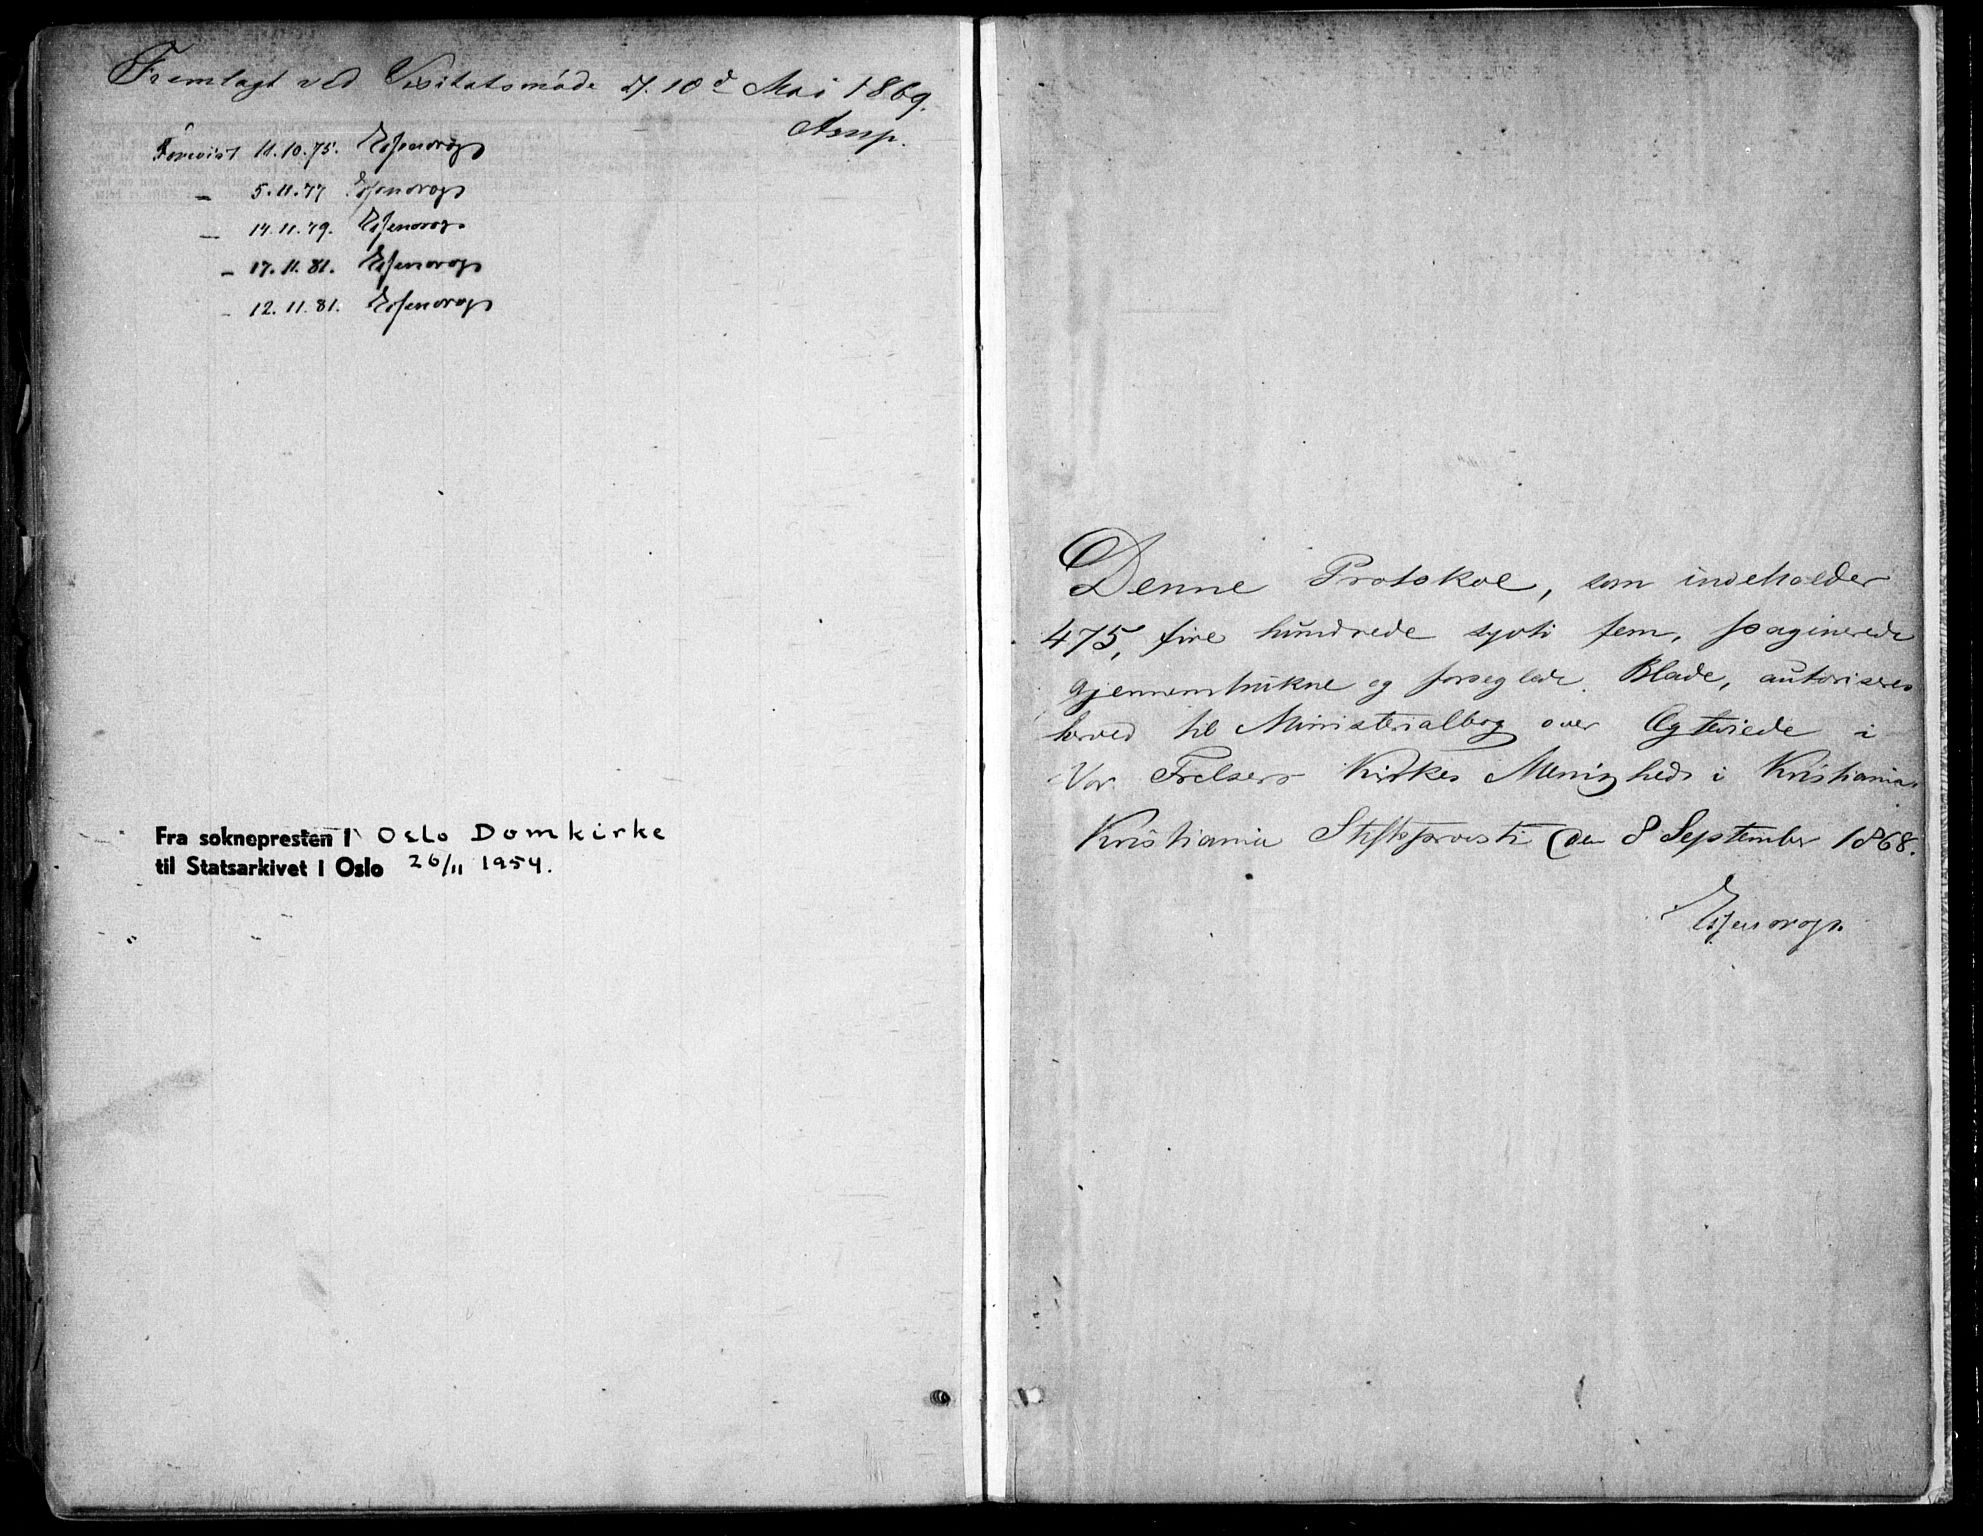 Fremlagt ved Visitatsmøde d. 10d Mai 1869.
Arup.
Forevist 11.10.75. Essendrop
- 5.11.77 Essendrop
- 14.11.79. Essendrop
- 17.11.81. Essendrop
- 12.11.81. Essendrop
Fra soknepresten i Oslo Domkirke
til Statsarkivet i Oslo 26/11 1954.
Denne Protokol, som indeholder
475, fire hundrede sytti fem, paginerede
gjennemtrukne og forseglede Blade, autoriseres
herved til Ministerialbog over Ægteviede i
Vor Frelsers Kirkes Menighed i Kristiania.
Kristiania Stiftsprovsti den 8 September 1868.
Essendrop.